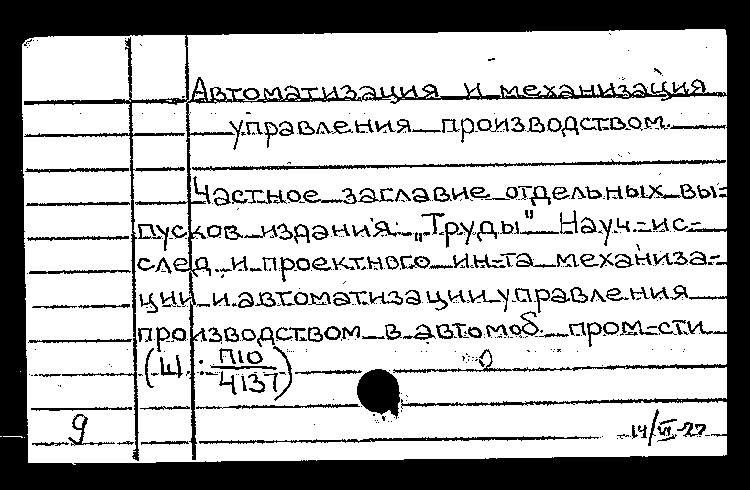 Автоматизация и механизация
управления производством.
Частное заглавие отдельных вы-
пусков издания: „Труды" Науч.-ис-
след. и проектного ин-та механиза-
ции и автоматизации управления
производством в автомоб. пром-сти
(Ш: П10
4137)
9
14/VI-77